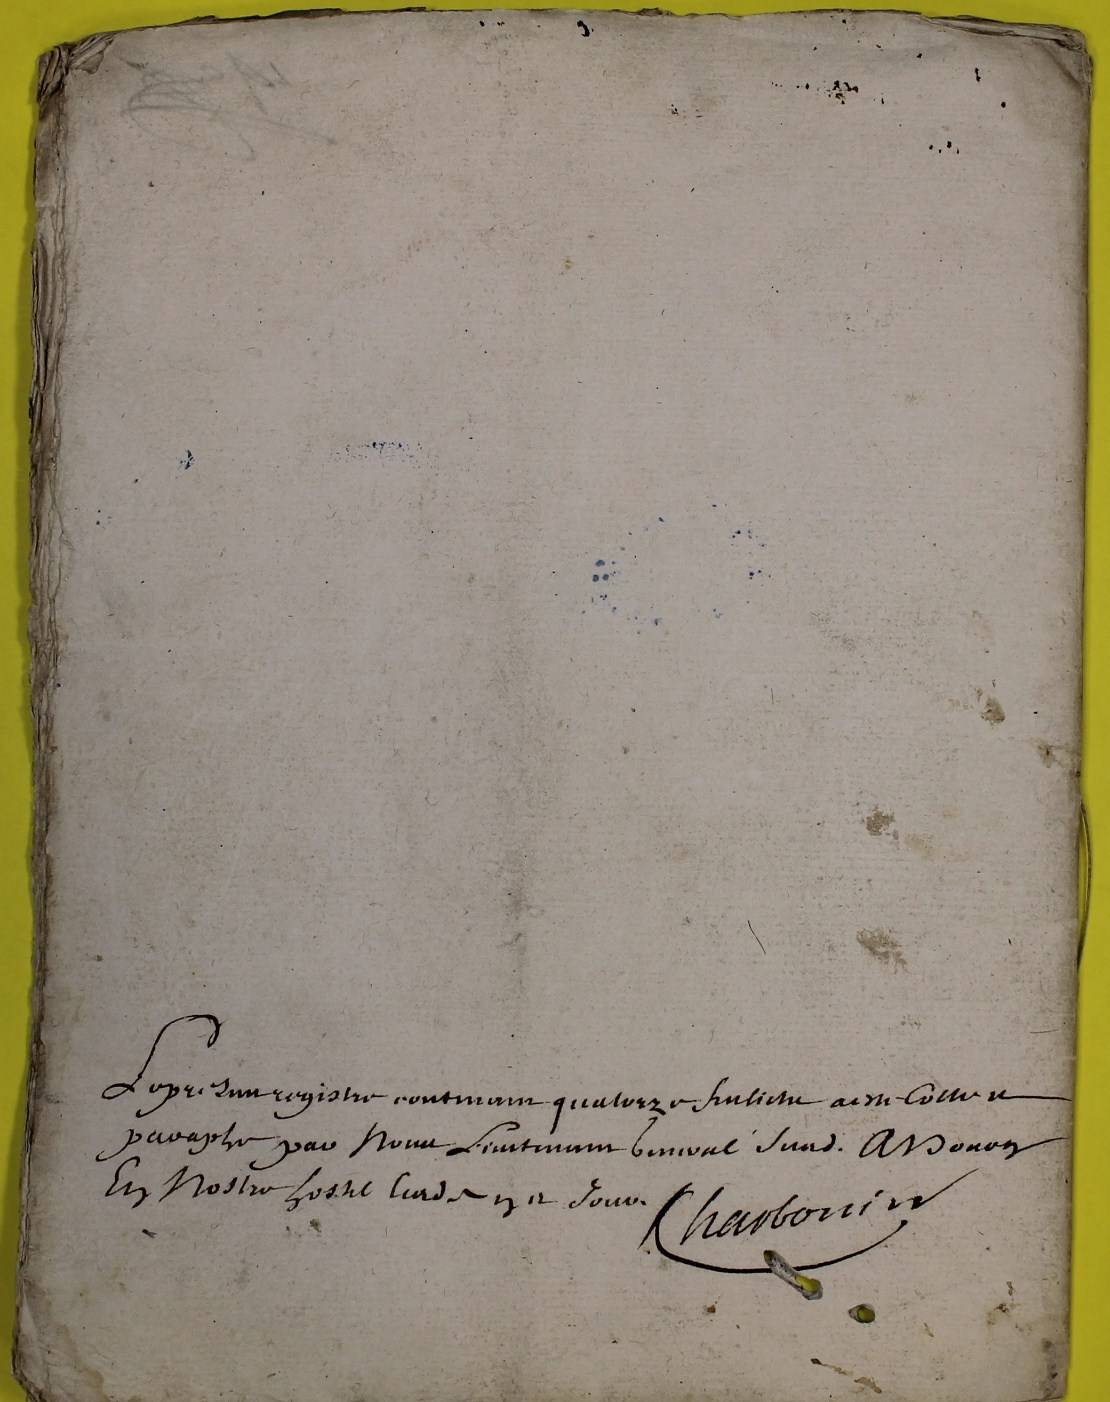 Le present registre contenant quatorze feulietz a este Cotte et
paraphe par Nous Lieutenant General susd. A Donon
En Nostre hostel lesd. jour
Charbonnier